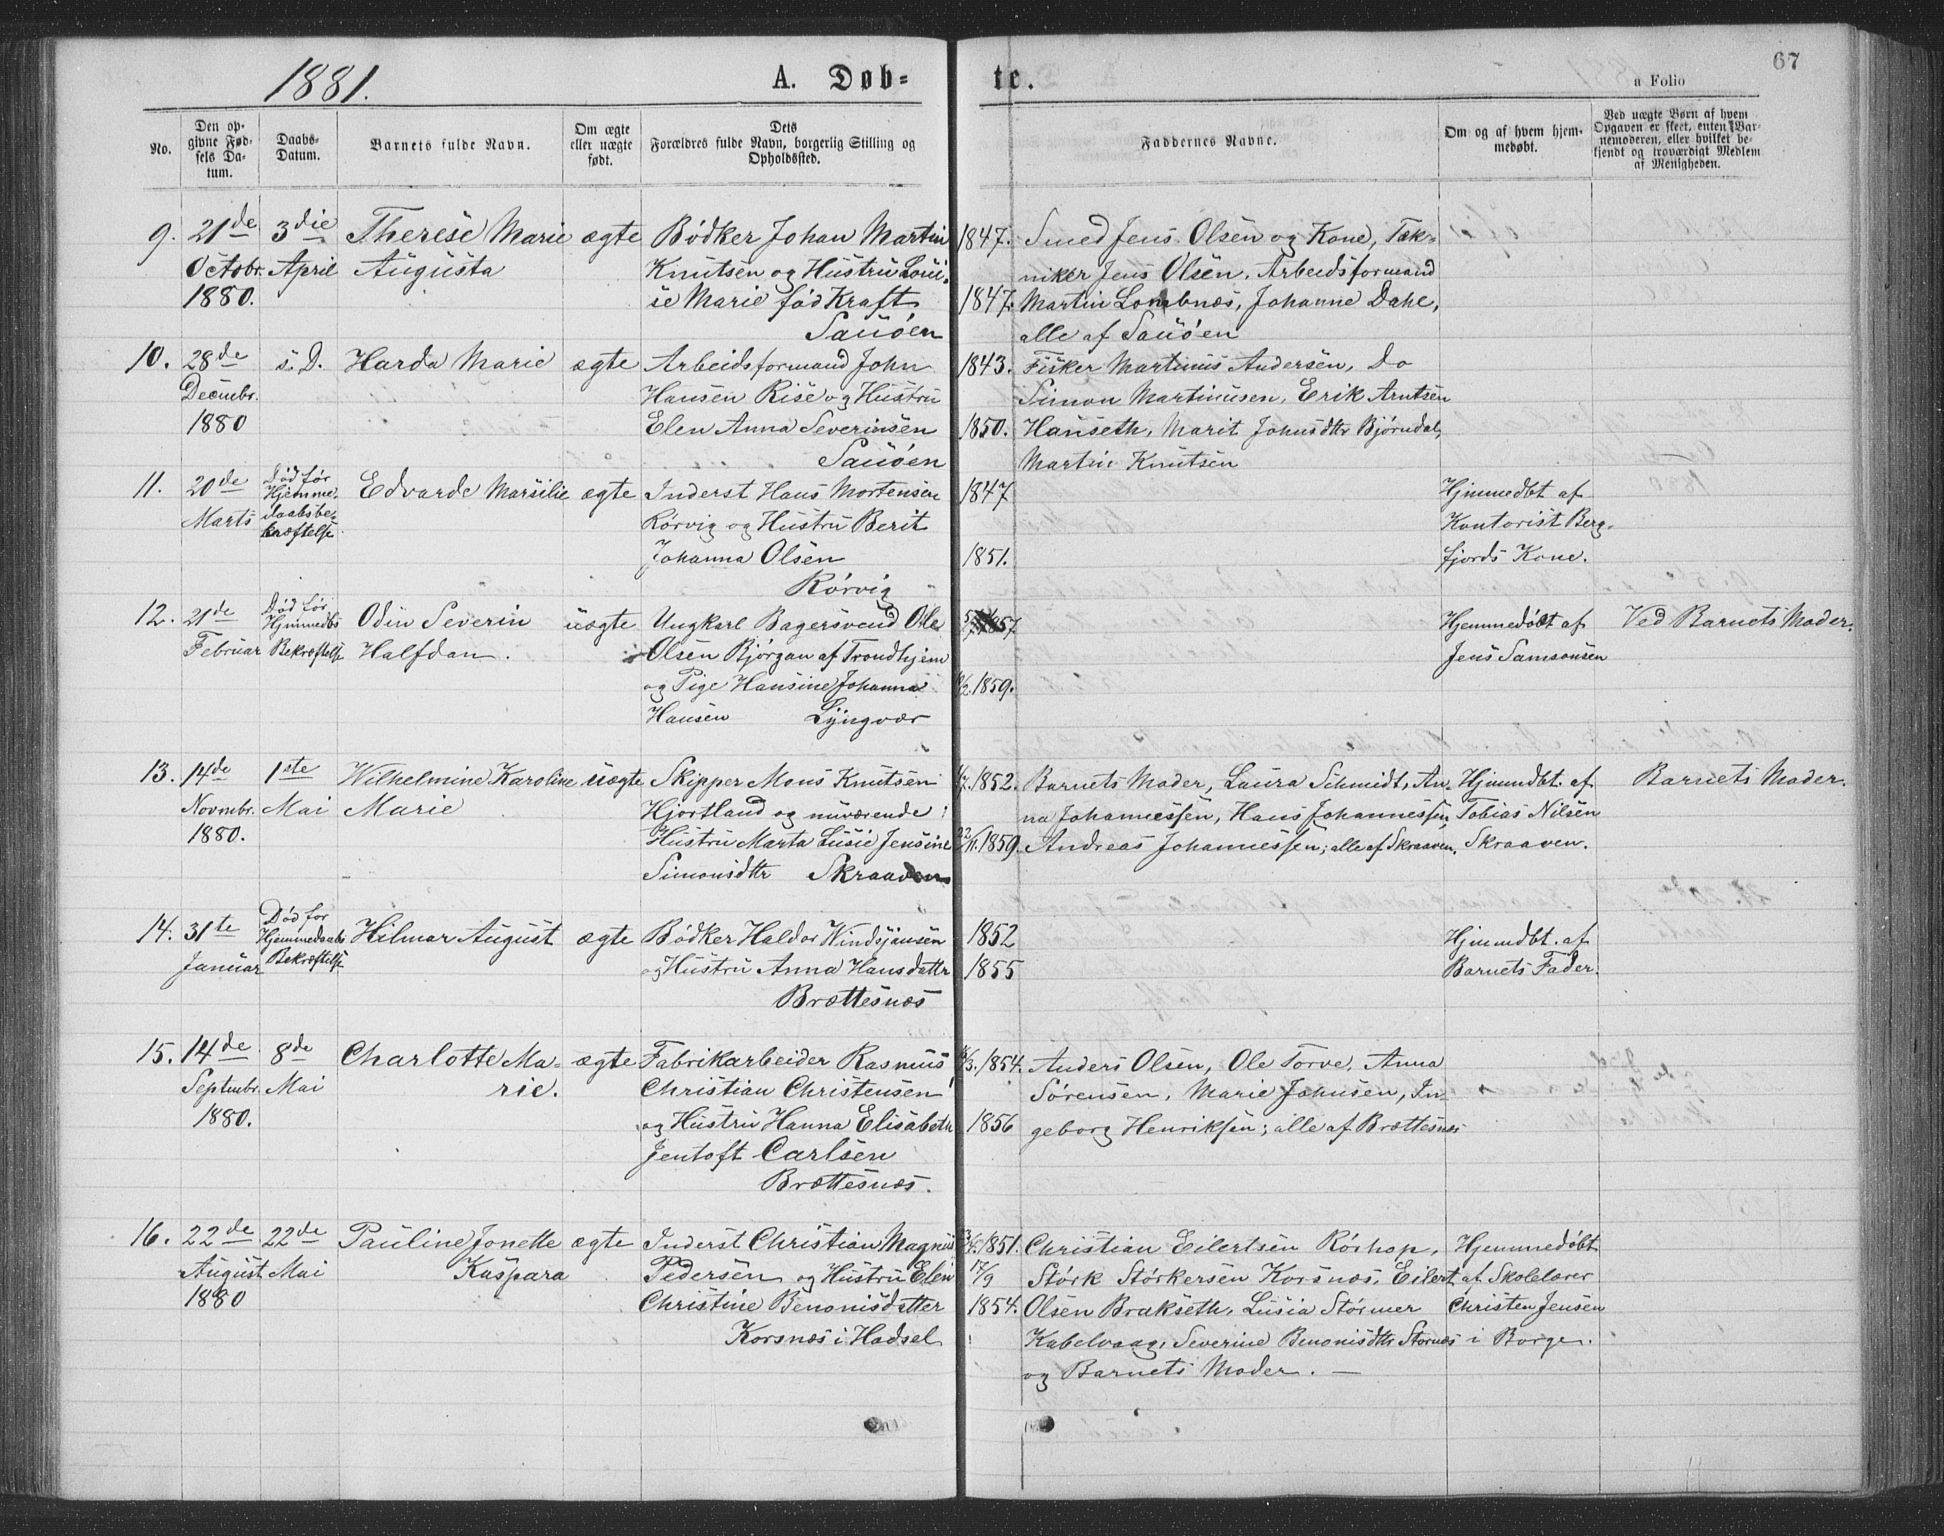 1881.
A. Døb-
te.
67
a Folio
No.
Den op-
givne Fød-
sels Da-
tum.
Daabs-
Datum.
Barnets fulde Navn.
Om ægte
eller uægte
født.
Dets
Forældres fulde Navn, borgerlig Stilling og
Opholdssted.
Faddernes Navne.
Om og af hvem hjem-
medøbt.
Ved uægte Børn af hvem
Opgaven er skeet, enten Bar-
nemoderen, eller hvilket be-
kjendt og troværdigt Medlem
af Menigheden.
9.
21de
Octobr.
1880.
3die
April
Therese Marie
Augusta
ægte
Bødker Johan Martin
Knutsen og Hustru Loui-
se Marie fød Kraft
Sauøen
1847.
1847.
Smed Jens Olsen og Kone, Tæk-
niker Jens Olsen, Arbeidsformand
Martin Lombnæs, Johanne Dahl,
alle af Sauøen
10.
28de
Decembr.
1880
s. D.
Harda Marie
ægte
Arbeidsformand John
Hansen Rise og Hustru
Elen Anna Severinsen
Sauøen
1843.
1850.
Fisker Martinus Andersen, Do
Simon Martinusen, Erik Arntsen
Hanseth, Marit Johnsdtr Bjørndal,
Martin Knutsen
11.
20de
Marts
Død før
Hjemme-
daabsbe-
kræftelse
Edvarde Marsilie
ægte
Inderst Hans Mortensen
Rørvig og Hustru Berit
Johanna Olsen
Rørvig
1847
1851.
Hjemmedbt af
Kontorist Berg-
fjords Kone.
12.
21de
Februar
Død før
Hjemmedbs
Bekræftelse
Odin Severin
Halfdan.
uægte
Ungkarl Bagersvend Ole
Olsen Bjørgan af Trondhjem
og Pige Hansine Johanna
Hansen Lyngvær
1857.
1859.
Hjemmedøbt af
Jens Samsonsen
Ved Barnets Moder.
13.
14de
Novmbr.
1880.
1ste
Mai
Wilhelmine Karoline
Marie
uægte
Skipper Mons Knutsen
Hjortland og nuværende
Hustru Marta Lusie Jensine
Simonsdtr Skraaven
1852.
22/11.1859.
Barnets Moder, Laura Schmidt, An-
na Johannessen, Hans Johannessen,
Andreas Johannessen; alle af Skraaven.
Hjemmdbt. af
Tobias Nilsen
Skraaven.
Barnets Moder.
14.
31te
Januar
Død før
Hjemmedaabs
Bekræftelse
Hilmar August
ægte
Bødker Haldor Windsjansen
og Hustru Anna Hansdattr
Brættesnæs
1852
1855
Hjemmdbt. af
Barnets Fader.
15.
14de
Septmbr.
1880.
8de
Mai
Charlotte Ma-
rie.
ægte
Fabrikarbeider Rasmus
Christian Christensen
og Hustru Hanna Elisabeth
Jentoft Carlsen
Brættesnæs.
1854.
1856
Anders Olsen, Ole Torve, Anna
Sørensen, Marie Johnsen, In-
geborg Henriksen; alle af Brættesnæs
16.
22de
August
1880
22de
Mai
Pauline Jonette
Kaspara
ægte
Inderst Christian Magnus
Pedersen og Hustru Elen
Christine Benonisdatter
Korsnæs i Hadsel
1851.
17/9
1854.
Christian Eilertsen Rørhop,
Størk Størkersen Korsnæs, Eilert
Olsen Brakseth, Lusia Størmer
Kabelvaag, Severine Benonisdtr Stornæs
og Barnets Moder. —
Hjemmedøbt
af Skolelærer
Christen Jensen
i Borge.